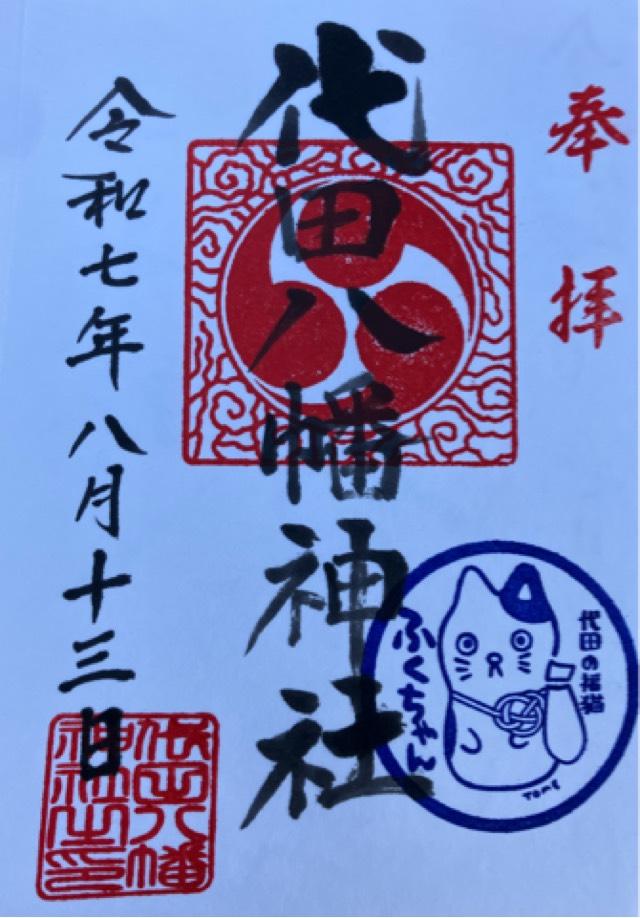 奉拝
代田八幡神社
令和七年八月十三日
代田の福猫
ふくちゃん
TOME
代田八幡
神社之印